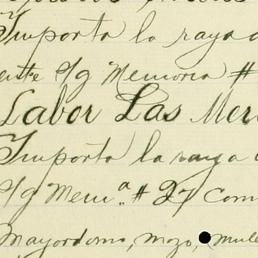 Importa la raya d
ente Sg Memoria #
Labor Las Mer
Importa la raya d
Sg Mem.ª # 27 com
Mayordomo, mozo, mule